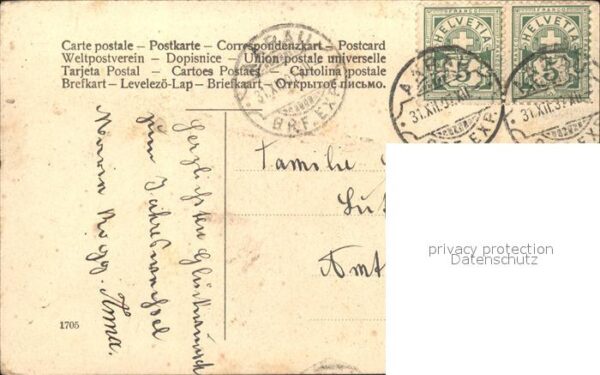 Carte postale – Postkarte – Correspondenzkart – Postcard
Weltpostverein – Dopisnice – Union postale universelle
Tarjeta Postal – Cartoes Postaes – Cartolina postale
Brefkart – Levelező-Lap – Briefkaart – Открытое письмо.
FRANCO FRANCO
HELVETIA HELVETIA
5 5
AARAU
31.XII.
BRF.EXP.
AARAU
31.XII.
BRF.EXP.
31.XII.
Herzlichsten Glückwunsch
zum Jahreswechsel
Anna.
Familie
Amt
privacy protection
Datenschutz
1705